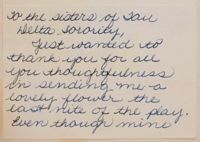 To the sisters of Tau
Delta Sorority,
Just wanted to
thank you for all
you thoughtfulness
in sending me a
lovely flower the
last nite of the play.
Even though mine